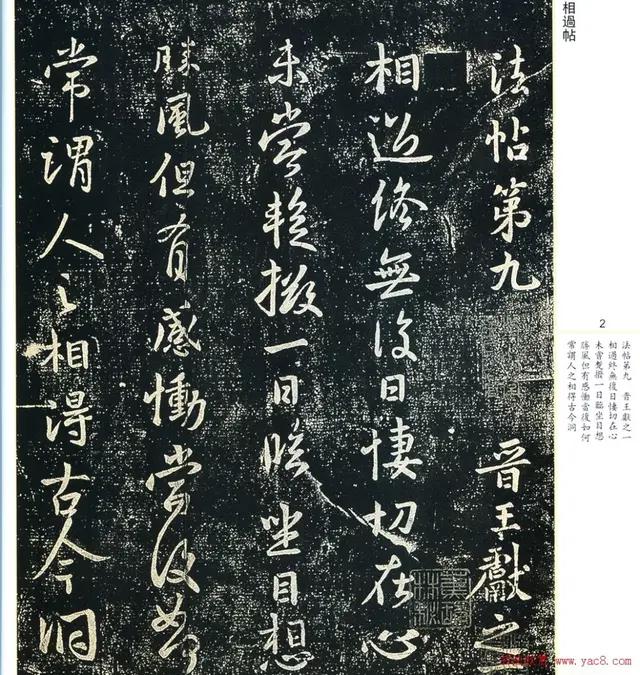 相過帖
法帖第九 晉王獻之
相過終無復日悽切在心
未嘗輟撥一日臨坐目想
勝風但有感慟當復如何
常謂人之相得古今洞
2
法帖第九 晉王獻之一
相過終無後日悽切在心
未嘗蹔撥一日臨坐目想
勝風但有感慟當復如何
常謂人之相得古今洞
www.yac8.com